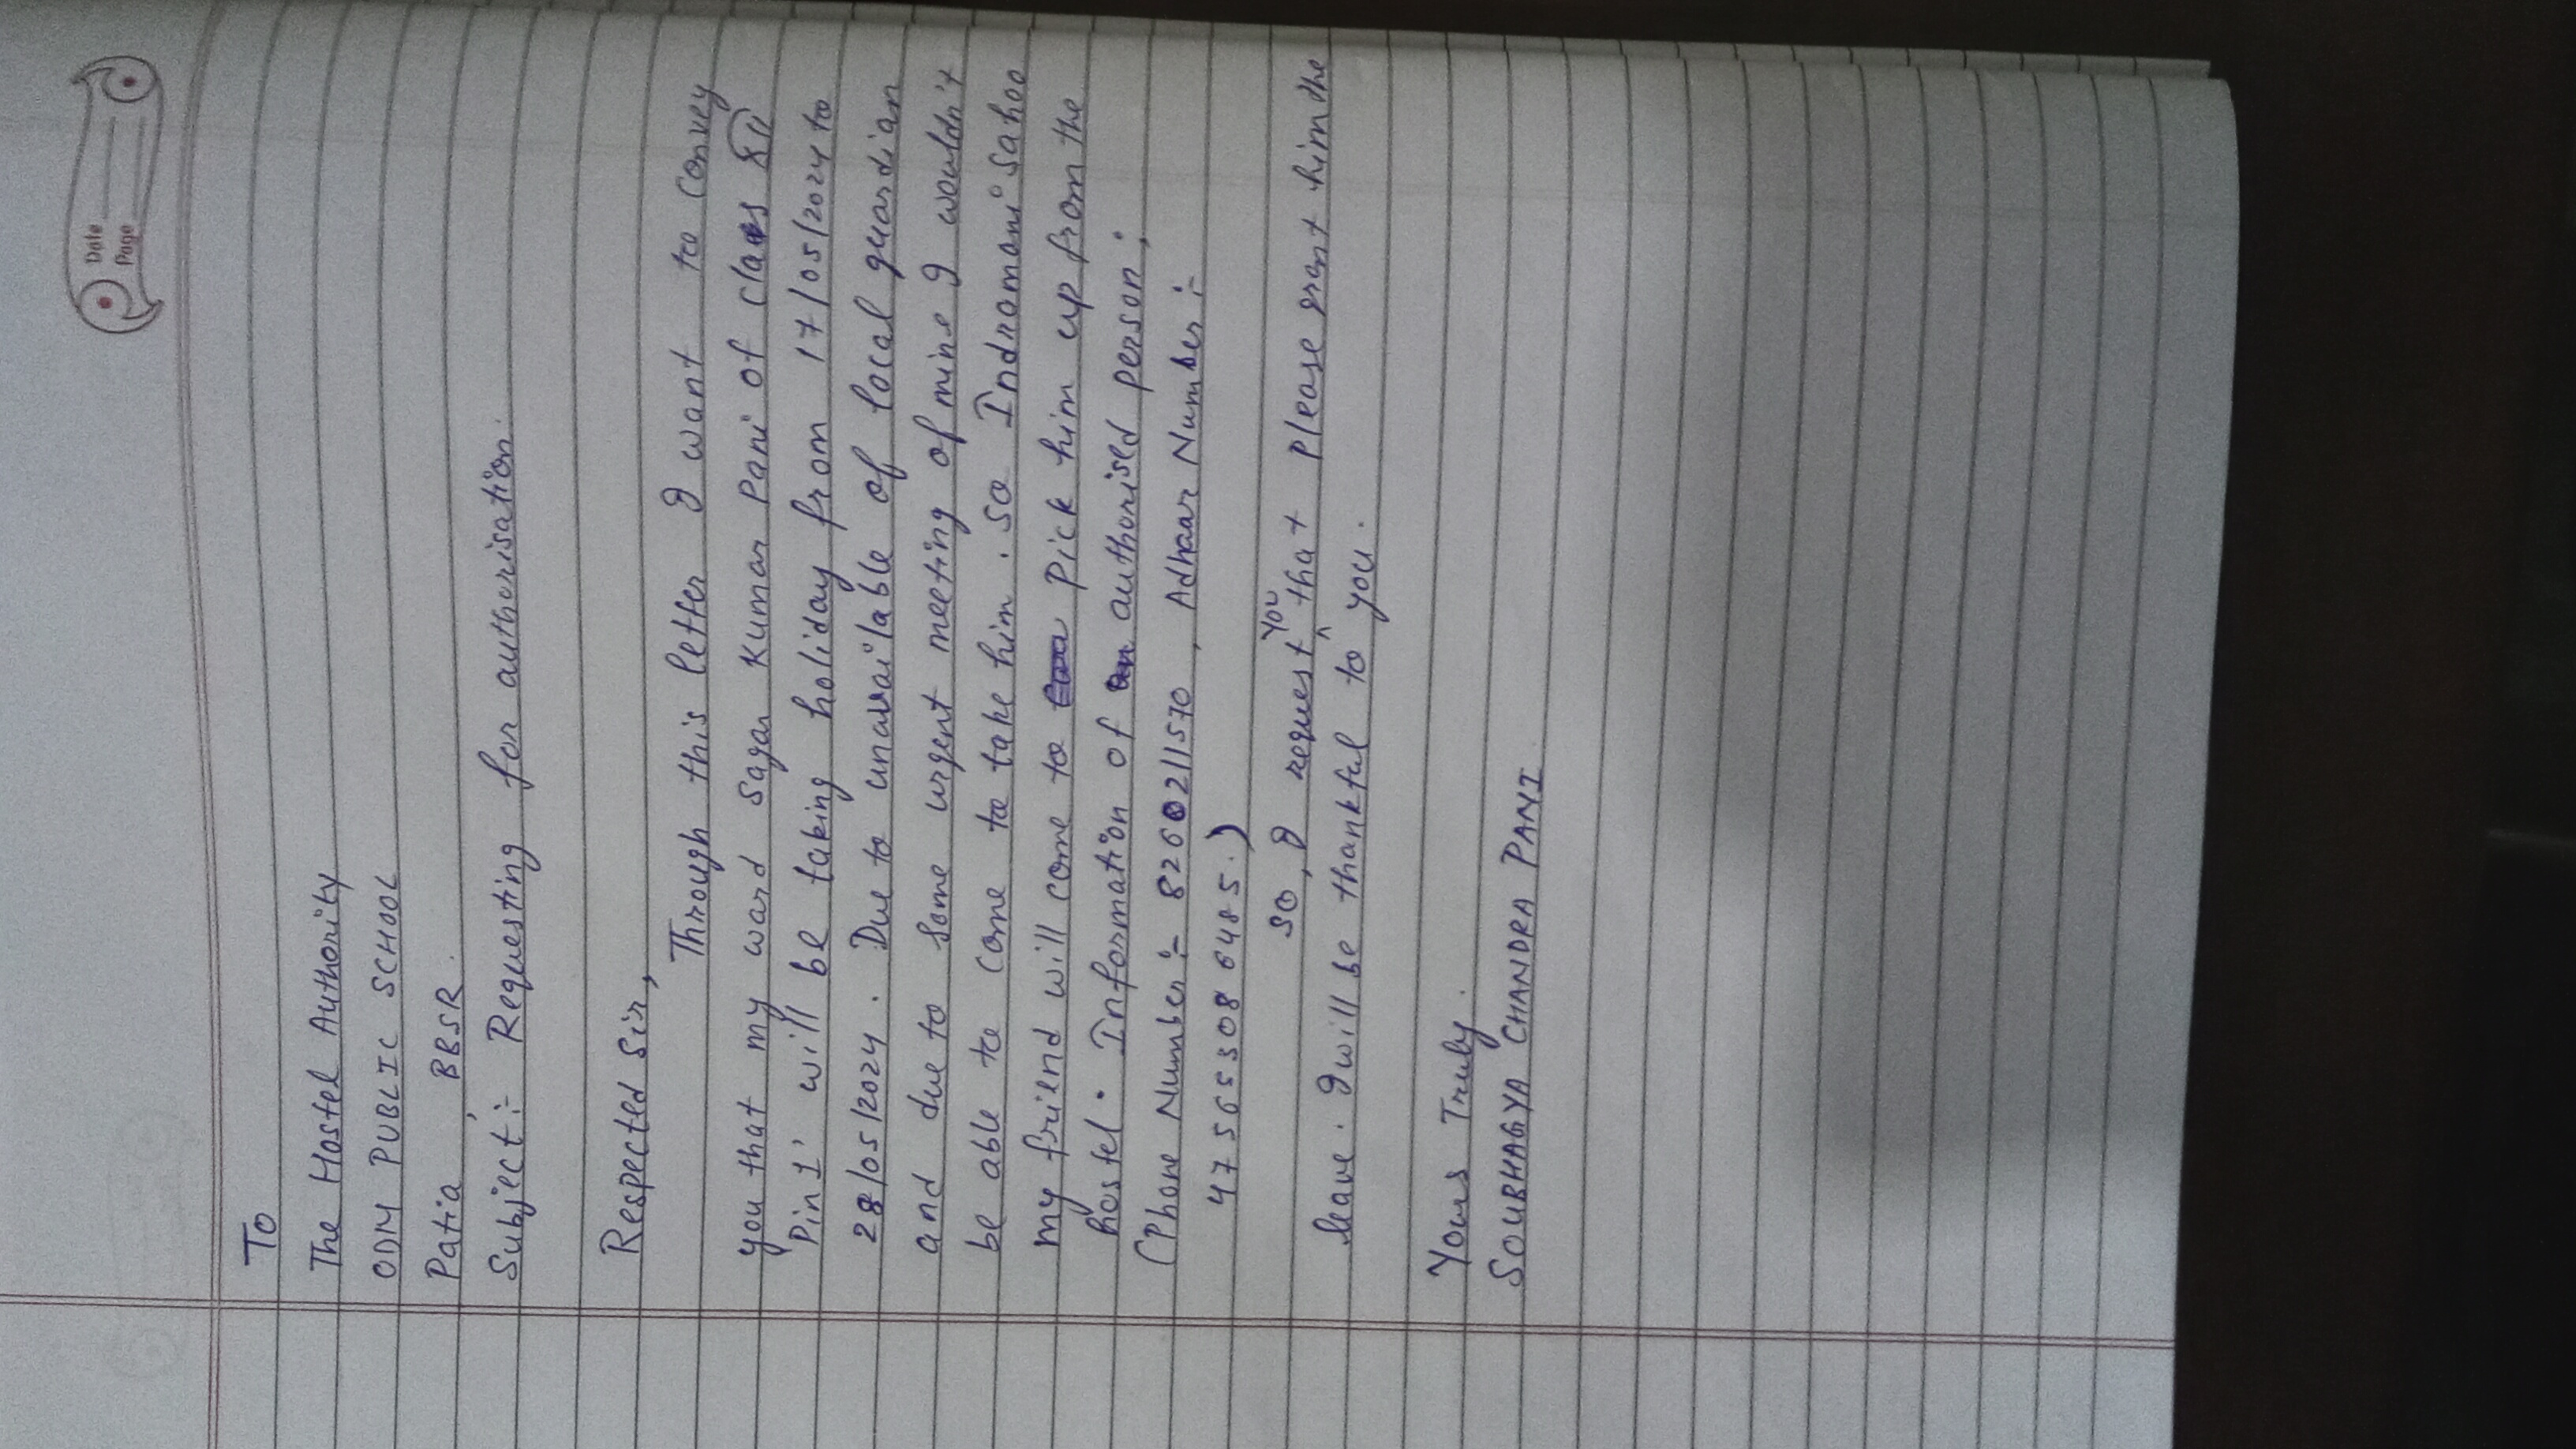 Date
Page
To
The Hostel Authority
ODM PUBLIC SCHOOL
Patia, BBSR.
Subject:- Requesting for authorisation.
Respected Sir,
Through this letter I want to convey
you that my ward Sagar Kumar Pani of class
Pin 1' will be taking holiday from 17/05/2024 to
28/05/2024. Due to unavailable of local guardian
and due to some urgent meeting of mine I wouldn't
be able to come to take him. So Indramani Sahoo
my friend will come to Pick him up from the
hostel. Information of authorised person;
(Phone Number:- 8260211570, Adhaar Number:-
475653086485.)
So, I request you that Please grant him the
leave. I will be thankful to you.
Yours Truly.
SOUBHAGYA CHANDRA PANI.